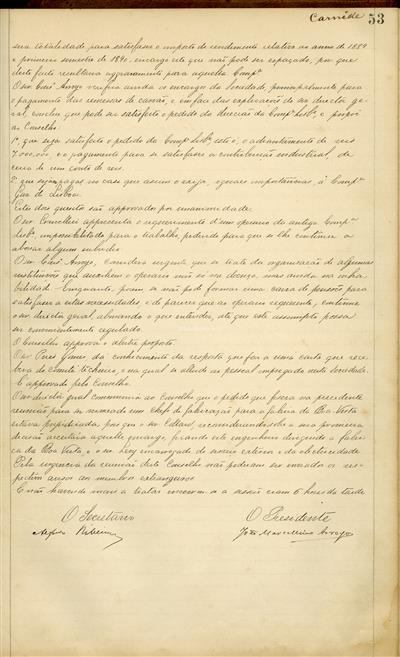 Carnide 53
sua totalidade para satisfazer o importe do rendimento relativo ao anno de 1889
e primeiro semestre de 1890, encargo este que não pode ser espaçado, por que
deste facto resultaria aggravamento para aquella Compª.
O Snr. Arroyo verifica ainda os encargos da Sociedade principalmente para
o pagamento das remessas de carvão, e em face das explicações do snr. director ge-
ral, conclue que pode ser satisfeito o pedido da direcção da Compª Lisbª. e propõe
ao Conselho:
1º que seja satisfeito o pedido da Compª Lisbª. isto é, o adiantamento de reis
7.000.000, e o pagamento para se satisfazer a contribuição industrial, de
cerca de um conto de reis.
2º que sejam pagas no caso que assim o exija, eguaes importancias, á Compª
Gaz de Lisboa.
Estes dois quesitos são approvados por unanimidade.
O snr. Conselheiro apresenta o requerimento d'um operario da antiga Compª
Lisbª. impossibilitado para o trabalho, pedindo para que se lhe continue a
abonar algum subsidio.
O snr. Arroyo, considera urgente que se trate da organisação de algumas
instituições que auxiliem o operario não só na doença, mas ainda na inha-
bilidade. Emquanto, porem se não pode formar uma caixa de pensões para
satisfazer a estas necessidades é de parecer que ao operario requerente, continue
o snr. director geral, abonando o que entender, até que este assumpto possa
ser convenientemente regulado.
O Conselho approva a dita proposta.
O snr. Pires dá conhecimento da resposta que fez a uma carta que rece-
beu do comité technico, e na qual se allude ao pessoal empregado nesta Sociedade.
É approvado pelo Conselho.
O snr. director geral communica ao Conselho que o pedido que fizera na precedente
reunião para ser nomeado um chefe de fabricação para a fabrica da Boa-Vista
estava prejudicado, por que o snr. reconsiderando sobre a sua primeira
decisão acceitára aquelle encargo, ficando este engenheiro dirigindo a fabri-
ca da Boa Vista, e o snr. encarregado do serviço exterior e da electricidade.
Pela urgencia da reunião deste Conselho não poderam ser enviados os res-
pectivos avisos aos membros extrangeiros.
E não havendo mais a tratar encerrou-se a sessão eram 6 horas da tarde
O Secretario O Presidente
Ribeiro João Marcellino Arroyo